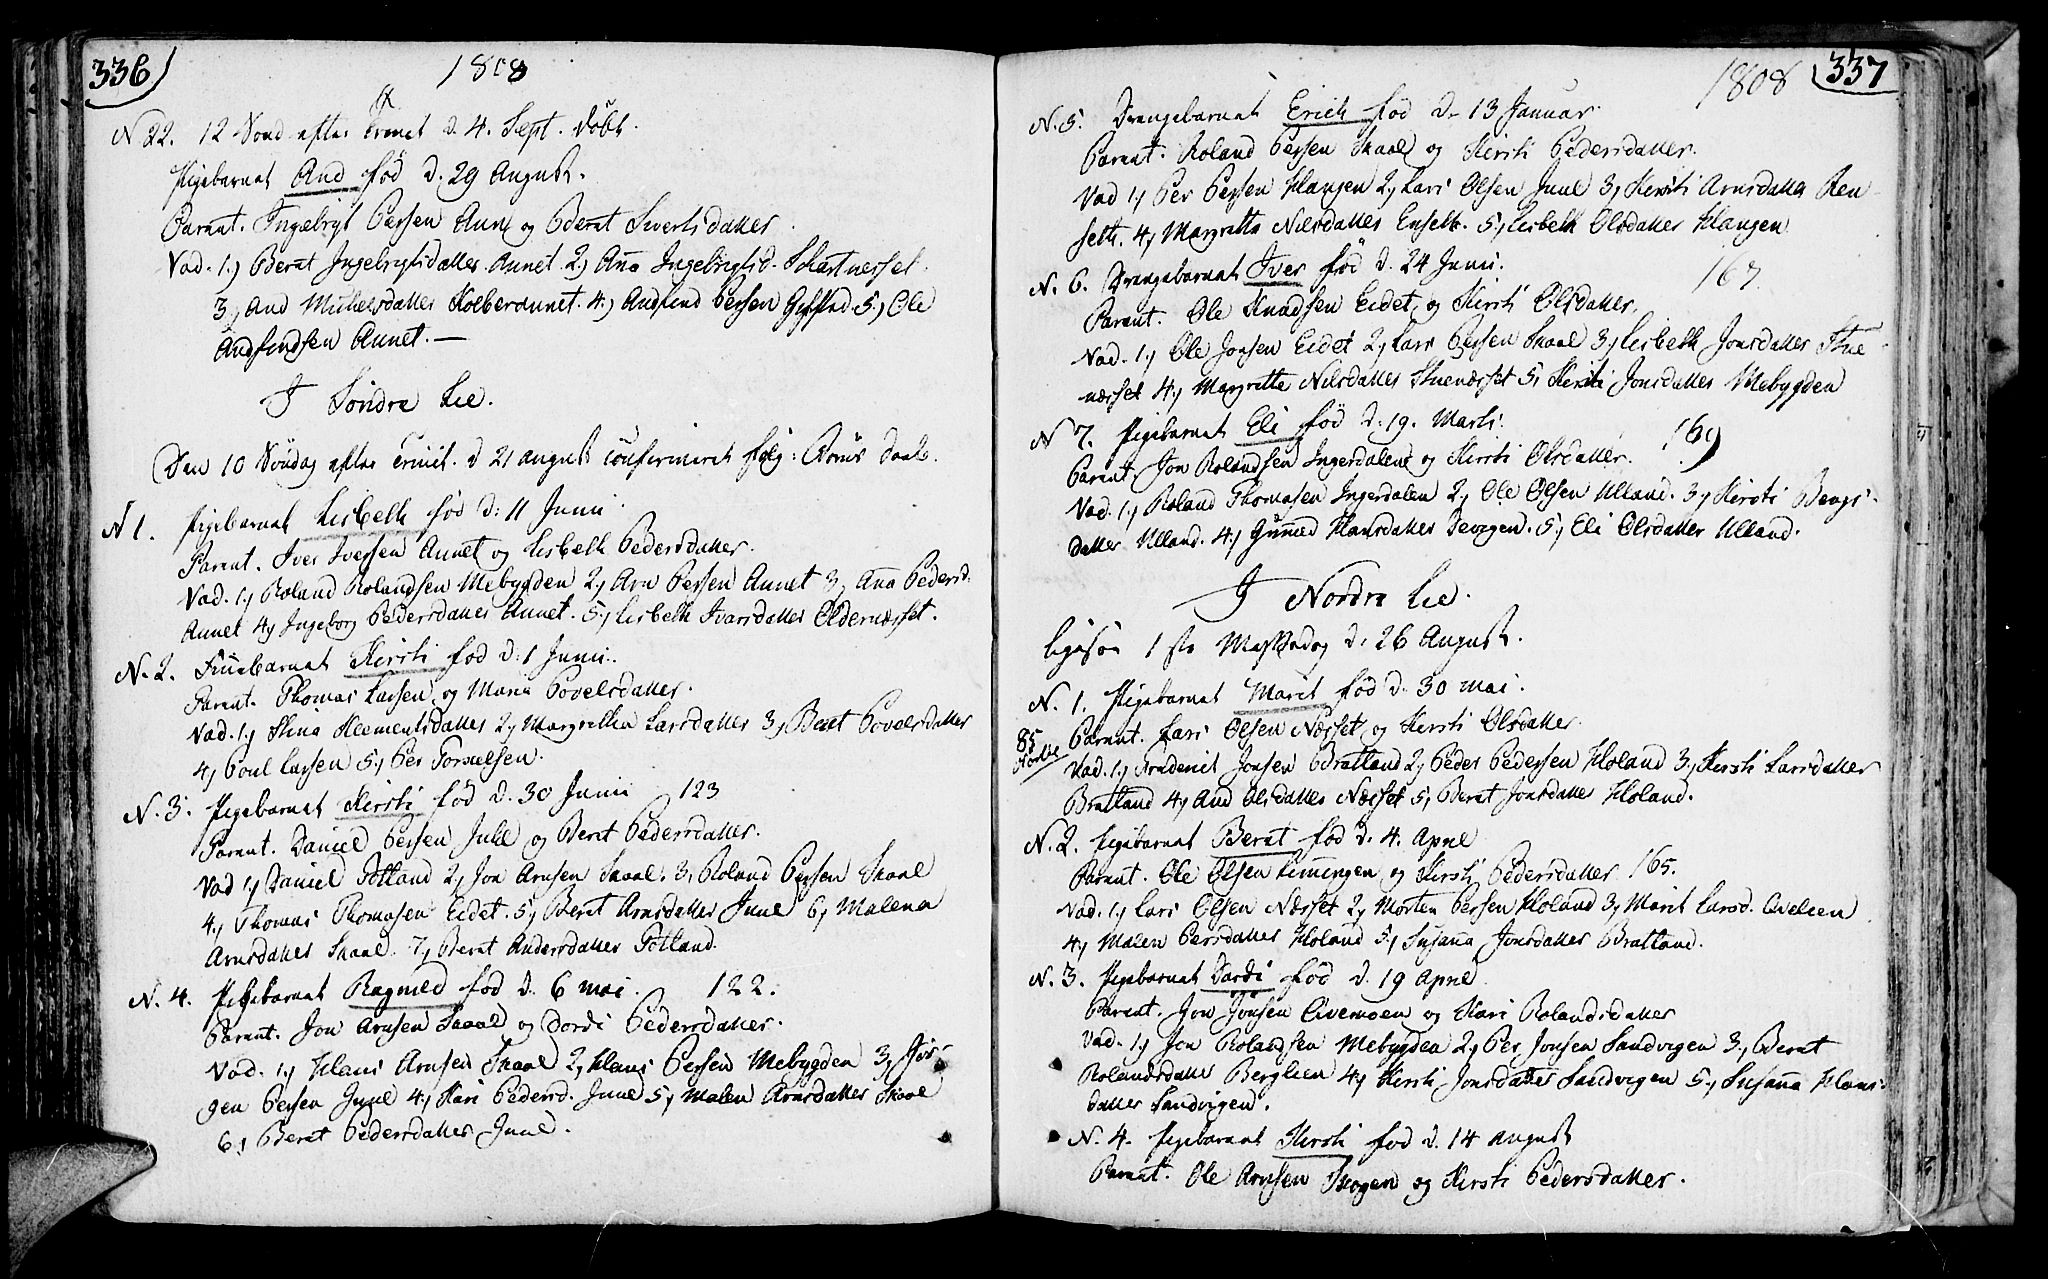 336
1808
N 22. 12 Sönd. efter Trenet. d. 4. Sept. döbt.
Pigebarnet And föd d. 29 August.
Parent. Ingebrigt Persen Anne og Berat Sivertsdatter.
Vad. 1, Berat Ingebrigtsdatter Annet 2, Aña Ingebrigtsd.
3, And Michelsdatter Kolberannet. 4, Andfind Persen 5, Ole
Andfindsen Annet. —
I Söndre Lie.
Den 10 Söndag efter Trinit. d 21 august confirmeret fölg:
N 1. Pigebarnet Lisbeth föd d: 11 Junii.
Parent. Iver Iversen Annet og Lisbeth Pedersdatter.
Vad. 1, Roland Rolandsen Mebygden 2, Arn Persen Annet 3, Aña Pedersd.
Annet 4, Ingeborg Pedersdatter Annet. 5, Lisbeth Ivarsdatter Oldernæsset.
N. 2. Kirsti föd d: 1 Junii.
Parent. Thomas Larsen og Maria Povelsdatter.
Vad. 1, Stina Klementsdatter 2, Margretha Larsdatter 3, Berit Povelsdatter
4, Poul Larsen 5, Per
N. 3. Pigebarnet Kirsti föd d. 30 Junii 123
Parent. Daniel Persen Juul og Berat Pedersdatter.
Vad 1, Daniel Totland 2, Jon Arnsen Skaal. 3, Roland Persen Skaal
4, Thomas Thomasen Eidet. 5, Berat Arnsdatter Juul 6, Malena
Arnsdatter Skaal. 7, Berat Andersdatter Totland.
N. 4. Pigebarnet Ragnied föd d. 6 mai. 122.
Parent. Jon Arnsen Skaal og Dordi Pedersdatter.
Vad. 1, Hans Arnsen Skaal 2, Hans Persen Mebygden 3, Jör-
gen Persen Juul 4, Kari Pedersd. Juul 5, Malen Arnsdatter Skaal
6, Berat Pedersdatter Juul.
337
1808
N. 5. Drengebarnet Erich föd d. 13 Januar.
Parent. Roland Persen Skaal og Kirsti Pedersdatter.
Vad 1, Per Persen Haugen 2, Lars Olsen Juul 3, Kirsti Arnsdatter Ren
seth. 4, Margretta Nilsdatter Enseth. 5, Lisbeth Olsdatter Haugen
N. 6. Drengebarnet Iver föd d. 24 Junii. 167
Parent. Ole Knudsen Eidet og Kirsti Olsdatter.
Vad. 1, Ole Jonsen Eidet 2, Lars Persen Skaal 3, Lisbeth Jonsdatter Stue-
næsset 4, Margrette Nilsdatter Stuenæsset 5, Kirsti Jonsdatter Mebygden
N 7. Pigebarnet Eli föd d. 19. Marti. 169
Parent, Jon Rolandsen Ingerdalen og Kirsti Olsdatter.
Vad. 1, Roland Thomasen Ingerdalen 2, Ole Olsen Ulland. 3, Kirsti Bengs-
datter Ulland. 4, Guñied Hansdatter Devigen. 5, Eli Olsdatter Ulland.
I Nordre Lie.
1ste d. 26 August.
N. 1. Pigebarnet Marit föd d. 30 mai.
85 Parent. Lars Olsen Næsset og Kirsti Olsdatter.
Vad. 1, Fruderic Jonsen Bratland 2, Peder Pedersen Holand 3, Kirsti Larsdatter
Bratland 4, And Olsdatter Næsset 5, Berat Jonsdatter Holand.
N. 2. Pigebarnet Berat föd d. 4. April
Parent. Ole Olsen og Kirsti Pedersdatter 165.
Vad. 1, Lars Olsen Næsset 2, Morten Persen Holand 3, Marit Larsd. Qvelien
4, Malen Persdatter Holand 5, Susaña Jonsdatter Bratland.
N. 3. Pigebarnet Dordi föd d. 19 April
Parent. Jon Jonsen Qvemoen og Kari Rolandsdatter
Vad. 1, Jon Rolandsen Mebygden 2, Per Jonsen Sandvigen 3, Berat
Rolandsdatter Berglien 4, Kirsti Jonsdatter Sandvigen 5, Susaña Hans-
datter Sandvigen.
N. 4. Pigebarnet Kirsti föd d. 14 august
Parent. Ole Arnsen Skogen og Kirsti Pedersdatter.